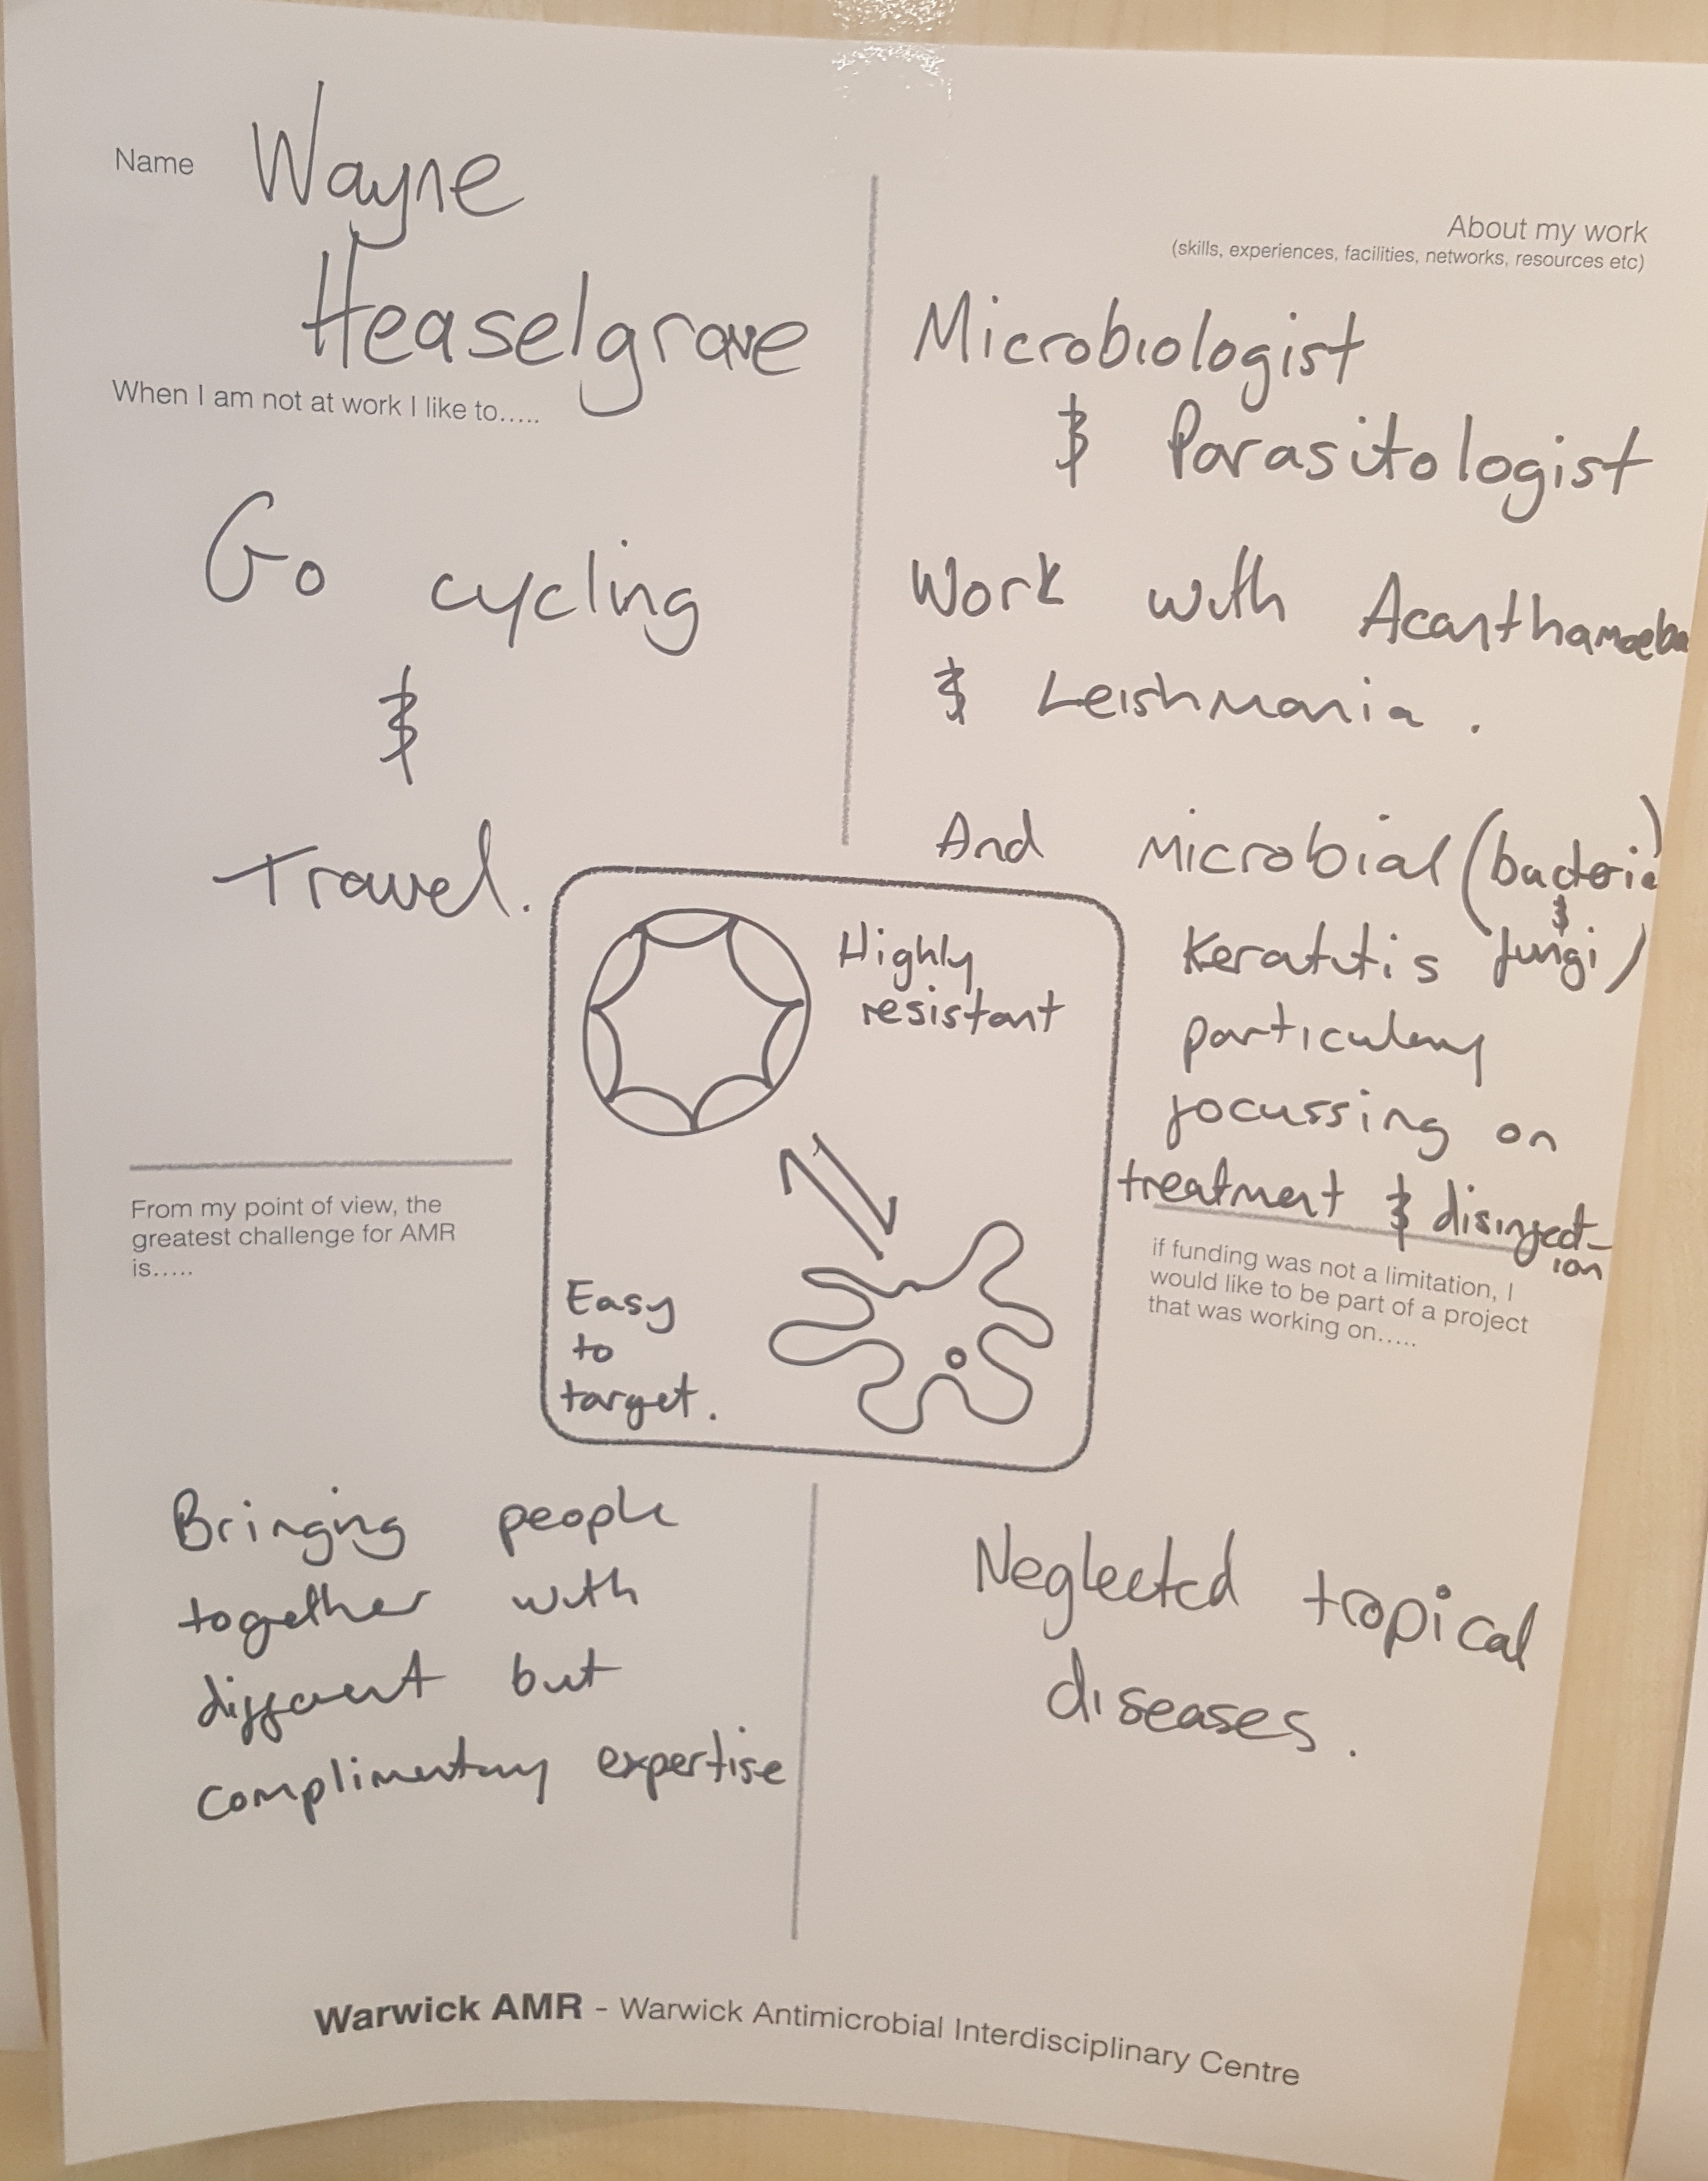 Name Wayne
Heaselgrave
When I am not at work I like to.....
Go cycling
&
Travel.
About my work
(skills, experiences, facilities, networks, resources etc)
Microbiologist
& Parasitologist
Work with Acanthamoeba
& Leishmania.
And Microbial (bacteria
&
Keratitis fungi)
particularly
focussing on
treatment & disinfect-
ion
Highly
resistant
Easy
to
target.
From my point of view, the
greatest challenge for AMR
is.....
Bringing people
together with
different but
complimentary expertise
if funding was not a limitation, I
would like to be part of a project
that was working on.....
Neglected tropical
diseases.
Warwick AMR - Warwick Antimicrobial Interdisciplinary Centre